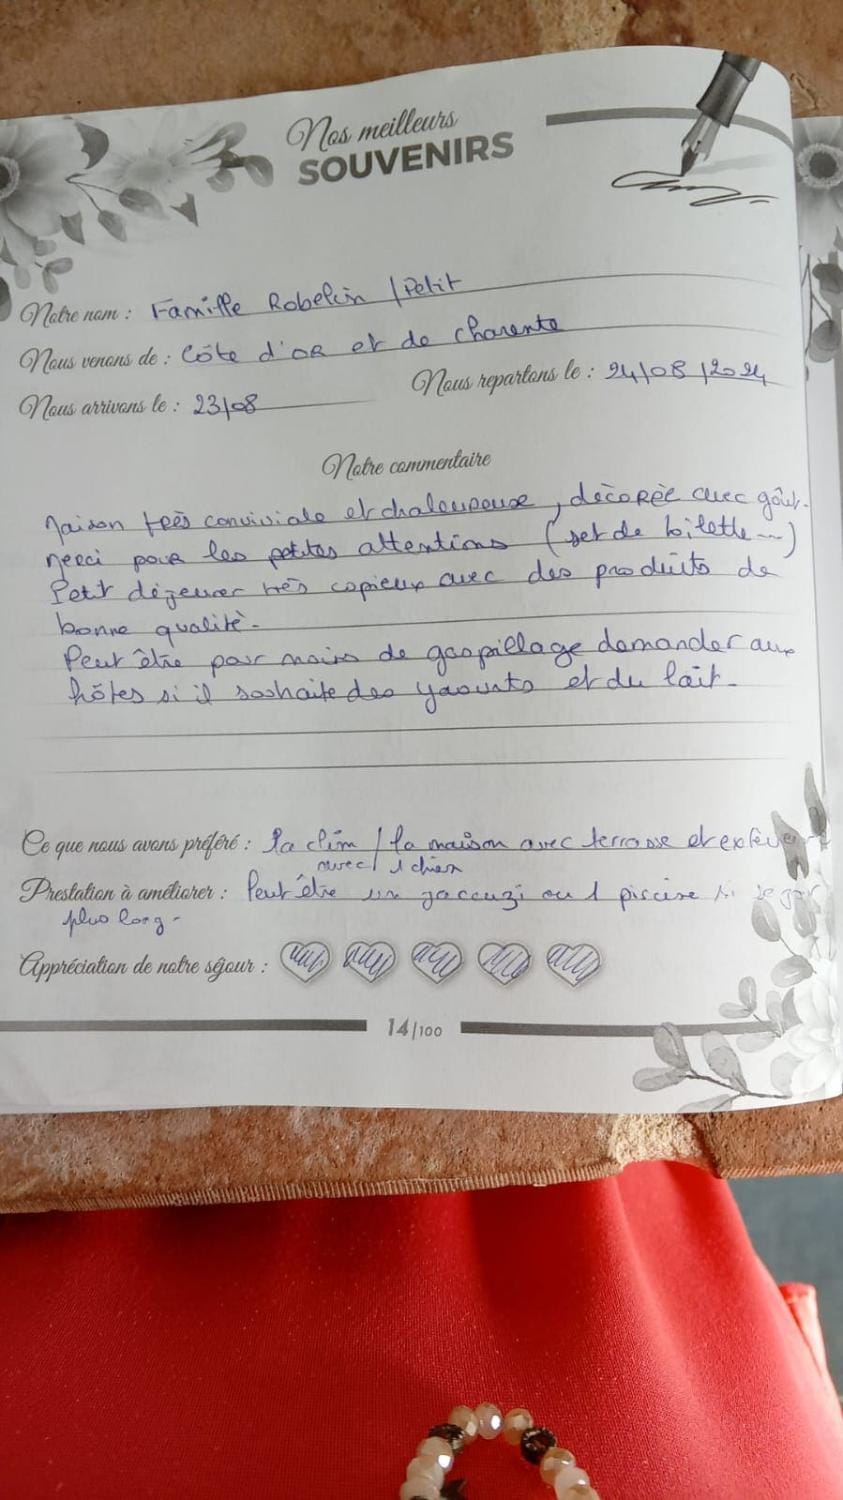 Nos meilleurs
SOUVENIRS
Notre nom : Famille Robelin / Petit
Nous venons de : Côte d'OR et de charente
Nous arrivons le : 23/08
Nous repartons le : 24/08/2024
Notre commentaire
Maison très conviviale et chaleureuse, décorée avec goût.
Merci pour les petites attentions (set de toilette ...)
Petit déjeuner très copieux avec des produits de
bonne qualité.
Peut être pour moins de gaspillage demander aux
hôtes si il souhaite des yaourts et du lait.
Ce que nous avons préféré : la clim / la maison avec terrasse et
avec 1 chien
Prestation à améliorer : Peut être un jaccuzi ou 1 piscine si
plus long -
Appréciation de notre séjour :
14/100